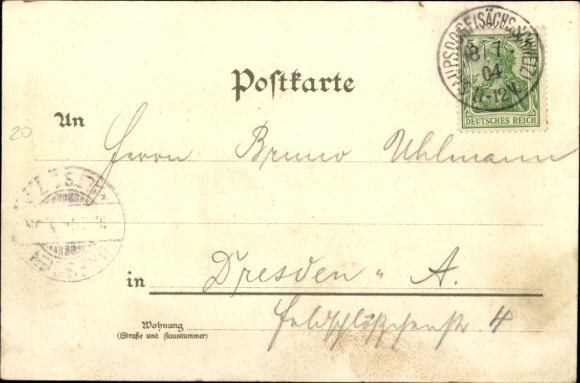 Postkarte
(SÄCHS. SCHWEIZ)
8 7
04
11-12V
DEUTSCHES REICH
20
An Herrn Bruno Uhlmann
in Dresden - A.
Wohnung Feldschlößchenstr. 4
(Straße und Hausnummer)